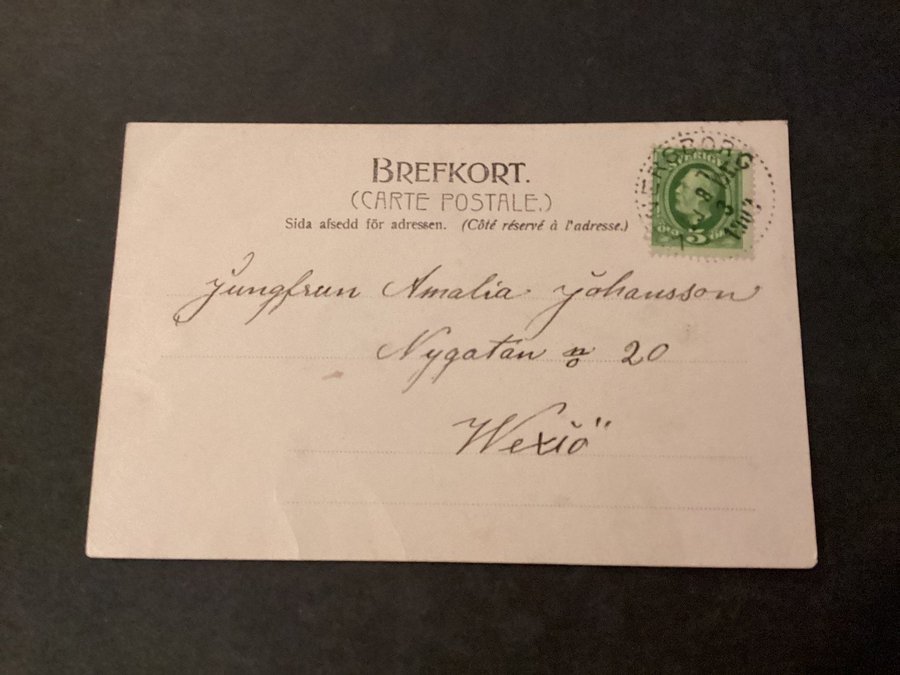 BREFKORT.
(CARTE POSTALE.)
Sida afsedd för adressen. (Côté réservé à l'adresse.)
SVERIGE
5
Jungfrun Amalia Johansson
Nygatan no 20
Wexiö